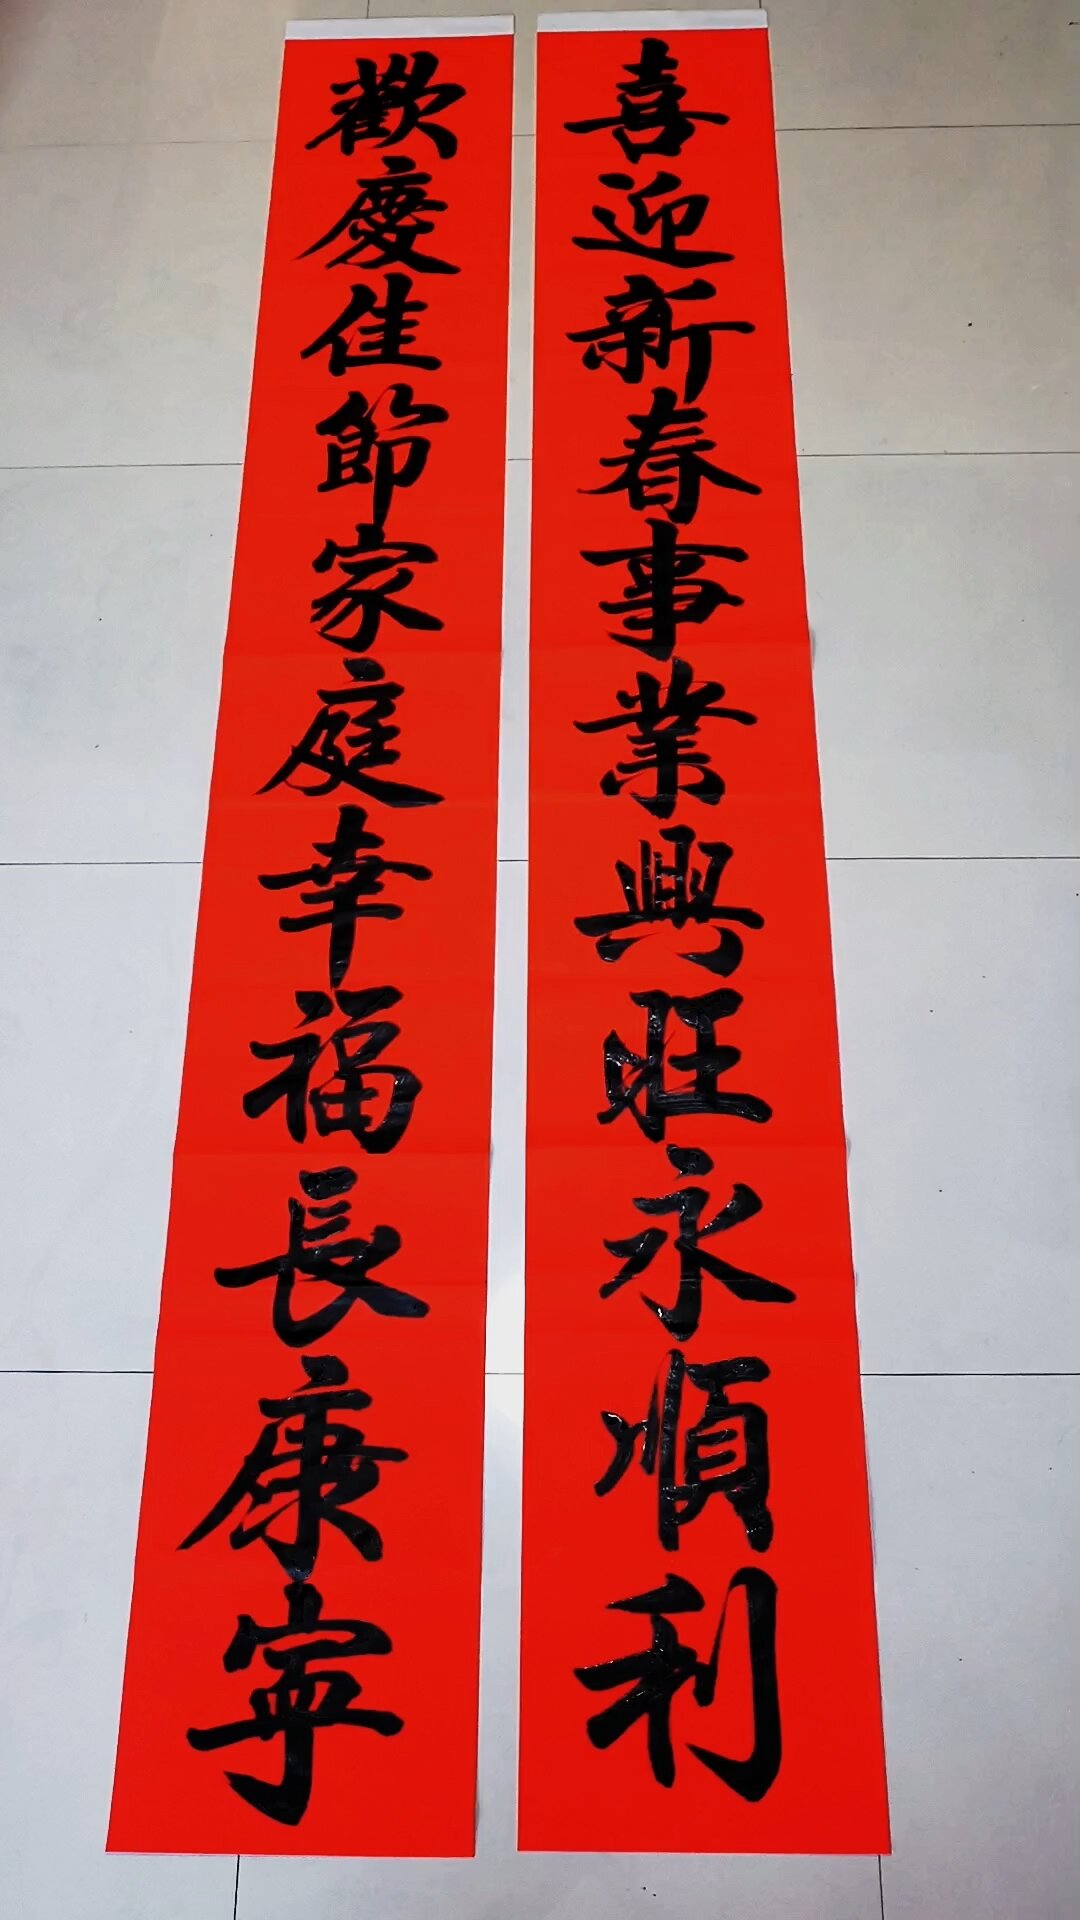 喜迎新春事業興旺永順利
歡慶佳節家庭幸福長康寧